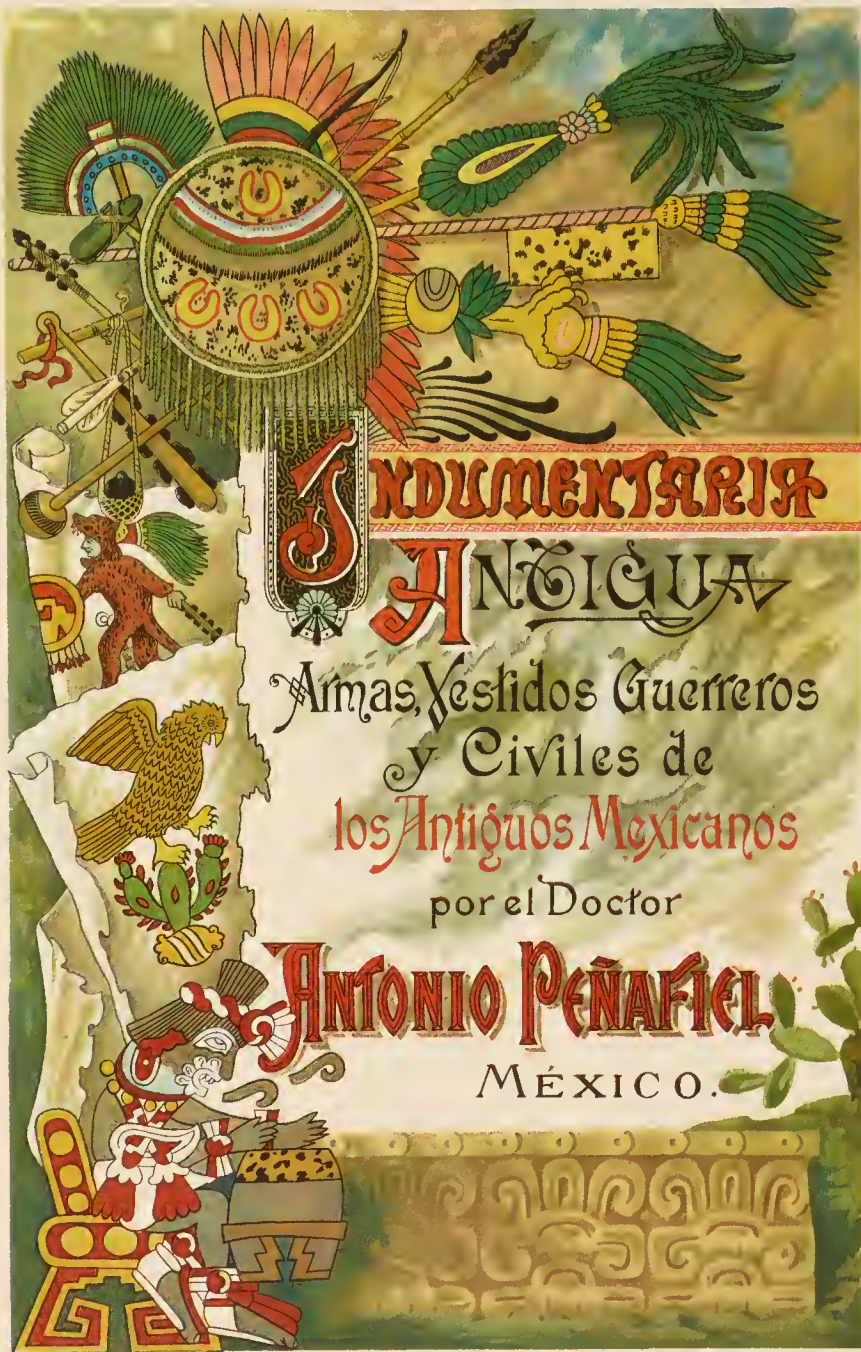 INDUMENTARIA
ANTIGUA
Armas, Vestidos Guerreros
y Civiles de
los Antiguos Mexicanos
por el Doctor
ANTONIO PEÑAFIEL
MÉXICO.